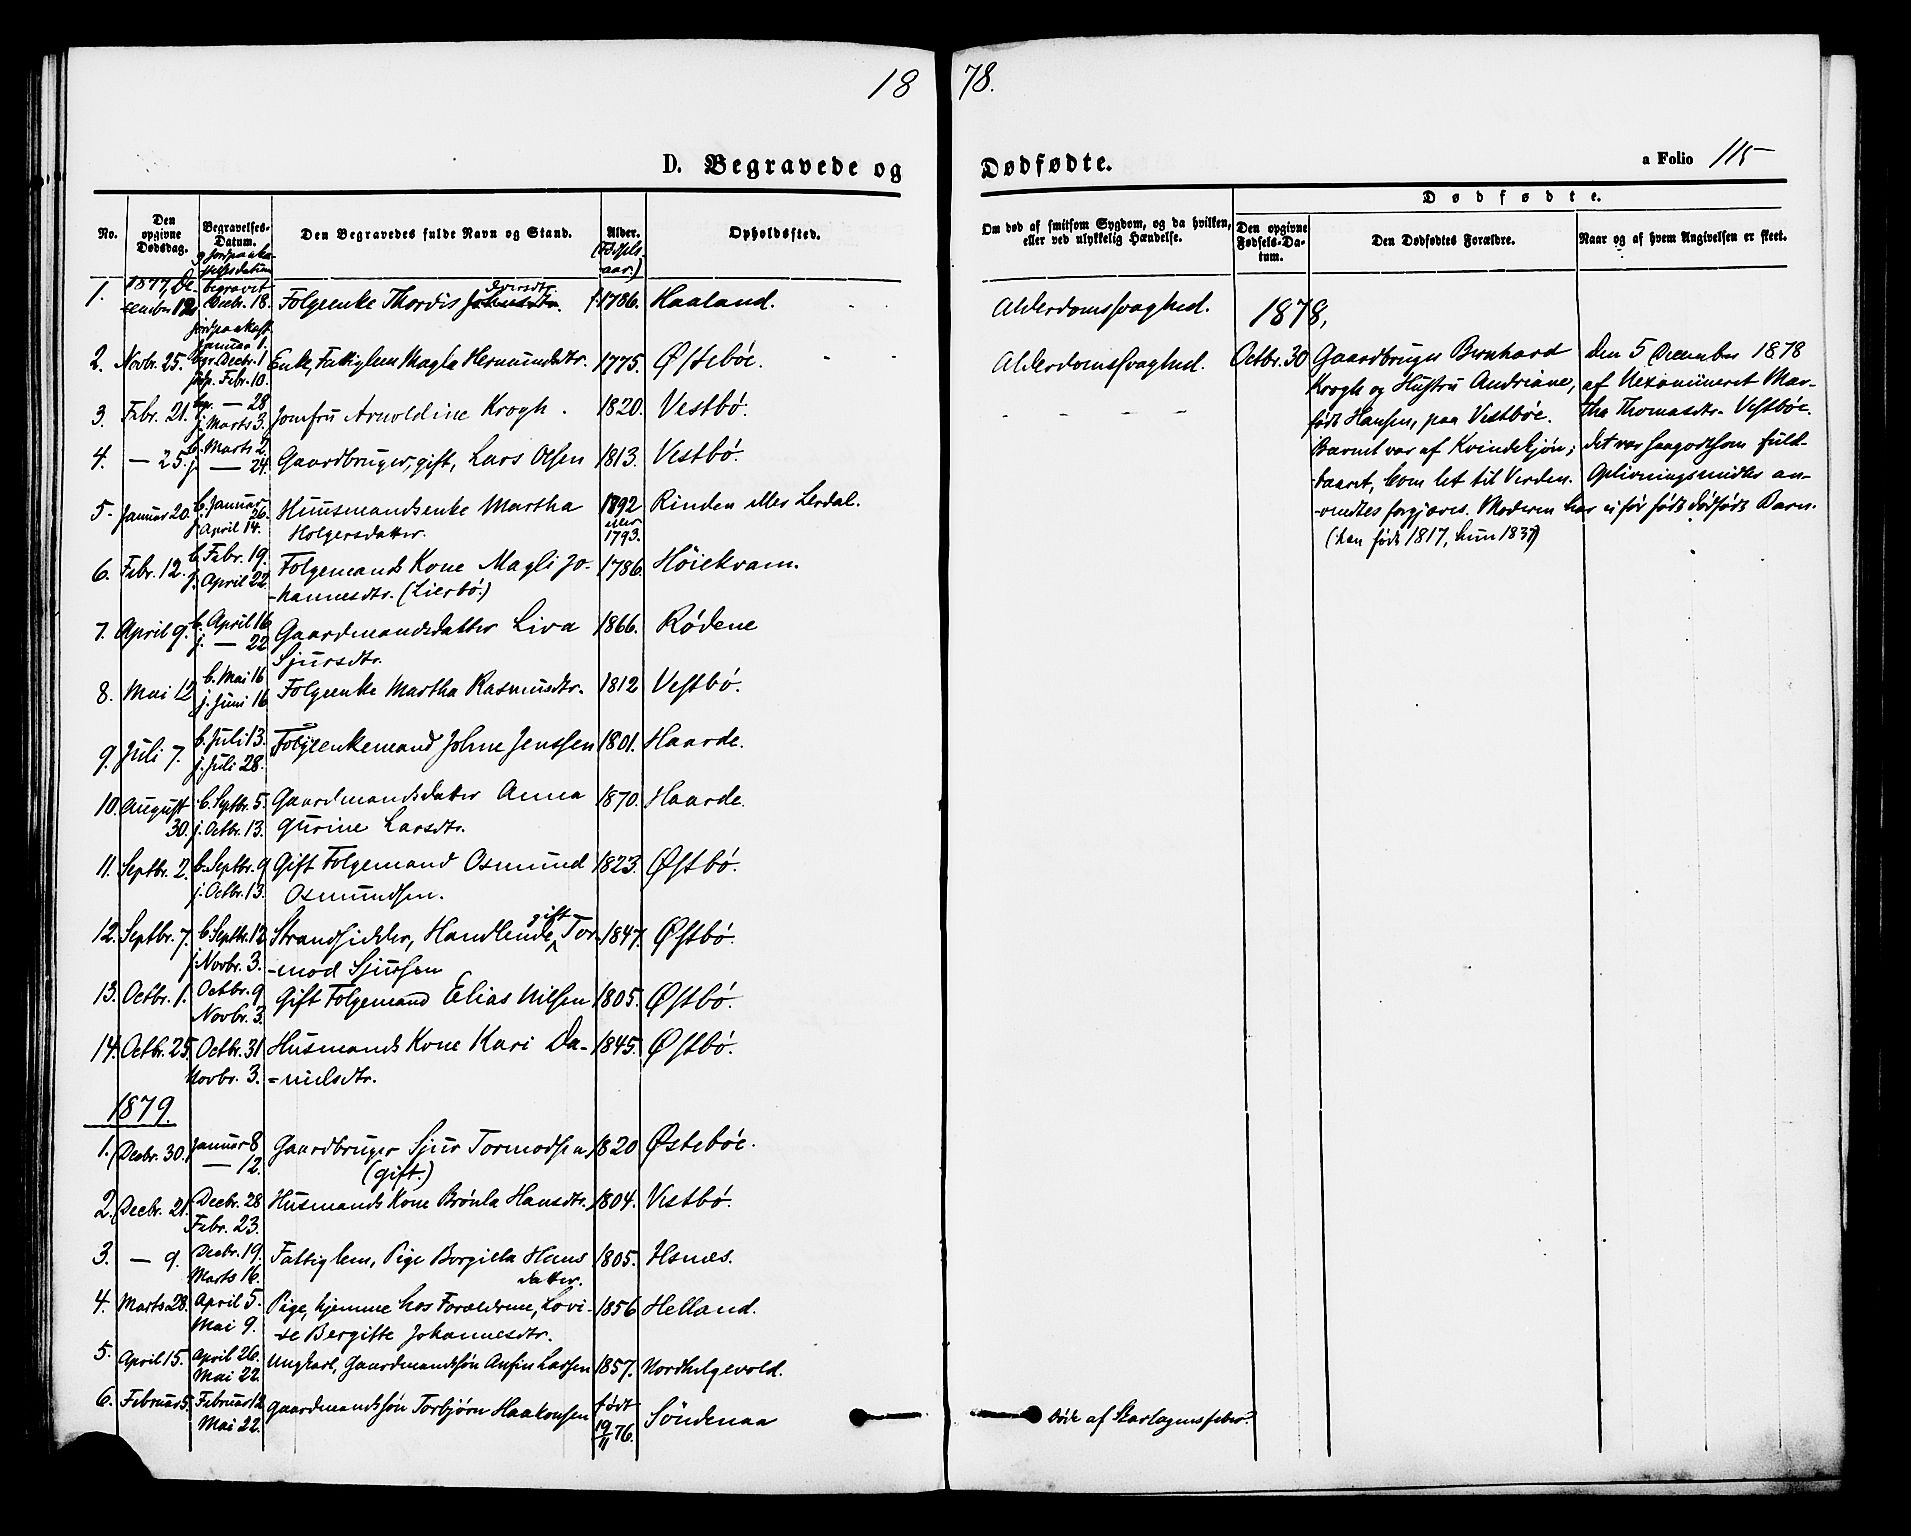 18 78.
D. Begravede og Dødfødte.
a Folio 115
No.
Den opgivne Dødsdag.
Begravelses-Datum.
Den Begravedes fulde Navn og Stand.
Alder. (Fødselsaar.)
Opholdsted.
Om død af smitsom Sygdom, og da hvilken, eller ved ulykkelig Hændelse.
Dødfødte.
Den opgivne Fødsels-Datum.
Den Dødfødtes Forældre.
Naar og af hvem Angivelsen er skeet.
1. 1877, De- begravet
cember 12 Decbr. 18. Folgeenke Thordis Iversdtr. f. 1786. Haaland. Alderdomssvaghed.
jordpaakast Januar 1.
2. Novbr. 25. bgr. Decbr. 1 Enke, Fattiglem Magla Hermundsdtr. 1775. Østebøe. Alderdomssvaghed.
jdp. Febr. 10.
3. Febr. 21. bgr. — 28 Jomfru Arnoldine Krogh. 1820. Vestbø.
j. Marts 3.
4. — 25. b. Marts 2 Gaardbruger, gift, Lars Olsen 1813. Vestbø.
j. — 24.
5. Januar 20. b. Januar 26. Huusmandsenke Martha 1892 Rinden eller Lerdal.
j. April 14. Holgersdatter. eller 1793.
6. Febr. 12. b. Febr. 19. Folgemands Kone Magli Jo- 1786. Høiekvam.
j. April 22. -hannesdtr. (Lierbø.)
7. April 9. b. April 16 Gaardmandsdatter Liva 1866. Rødene
j. — 22 Sjursdtr.
8. Mai 12 b. Mai 16 Folgeenke Martha Rasmusdtr. 1812 Vestbø.
j. Juni 16
9. Juli 7. b. Juli 13. Folgeenkemand Johne Jenssen 1801. Haarde.
j. Juli 28.
10. August b. Septbr. 5. Gaardmandsdatter Anna 1870. Haarde.
30. j. Octbr. 13. Gurine Larsdtr.
11. Septbr. 2. b. Septbr. 9 Gift Folgemand Osmund 1823. Østbø.
j. Octbr. 13. Osmundsen.
12. Septbr. 7. b. Septbr. 12 Strandsidder, Handlende, gift Tor- 1847. Østbø.
j. Novbr. 3. -mod Sjursen
13. Octbr. 1. Octbr. 9 Gift Folgemand Elias Nilsen 1805. Østbø.
Novbr. 3.
14. Octbr. 25. Octbr. 31 Husmands Kone Kari Da- 1845. Østbø.
Novbr. 3. -nielsdtr.
1879.
1. (Decbr. 30.) Januar 8 Gaardbruger Sjur Tormodsen, 1820 Østebøe.
— 12. (gift.)
2. (Decbr. 21. Decbr. 28 Husmands Kone Brønla Hansdtr. 1804. Vestbø.
Febr. 23.
3. — 9. Decbr. 19. Fattiglem, Pige Borgilla Hans 1805. Hsnæs.
Marts 16. datter.
4. Marts 28. April 5. Pige, hjemme hos Forældrene, Lovi- 1856 Helland.
Mai 9. -se Bergitte Johannesdtr.
5. April 15. April 26. Ungkarl, Gaardmandssøn Anfin Larsen 1857. Nordhelgevold.
Mai 22.
6. Februar 5. Februar 12 Gaardmandssøn Torbjørn Haakonsen født 19/11 76. Søndenaa Døde af Skarlagensfeber.
Mai 22.
1878,
Octbr. 30 Gaardbruger Bernhard Den 5 December 1878
Krogh og Hustru Andriane, af Uexamineret Mar-
født Hansen, paa Vestbøe. tha Thomasdtr. Vestbøe.
Barnet var af Kvindekjøn; det var saagodtsom fuld-
-baaret, kom let til Verden. Oplivningsmidler an-
-vendtes forgjæves. Moderen har ei før født dødfødt Barn.
(han født 1817, hun 1837)